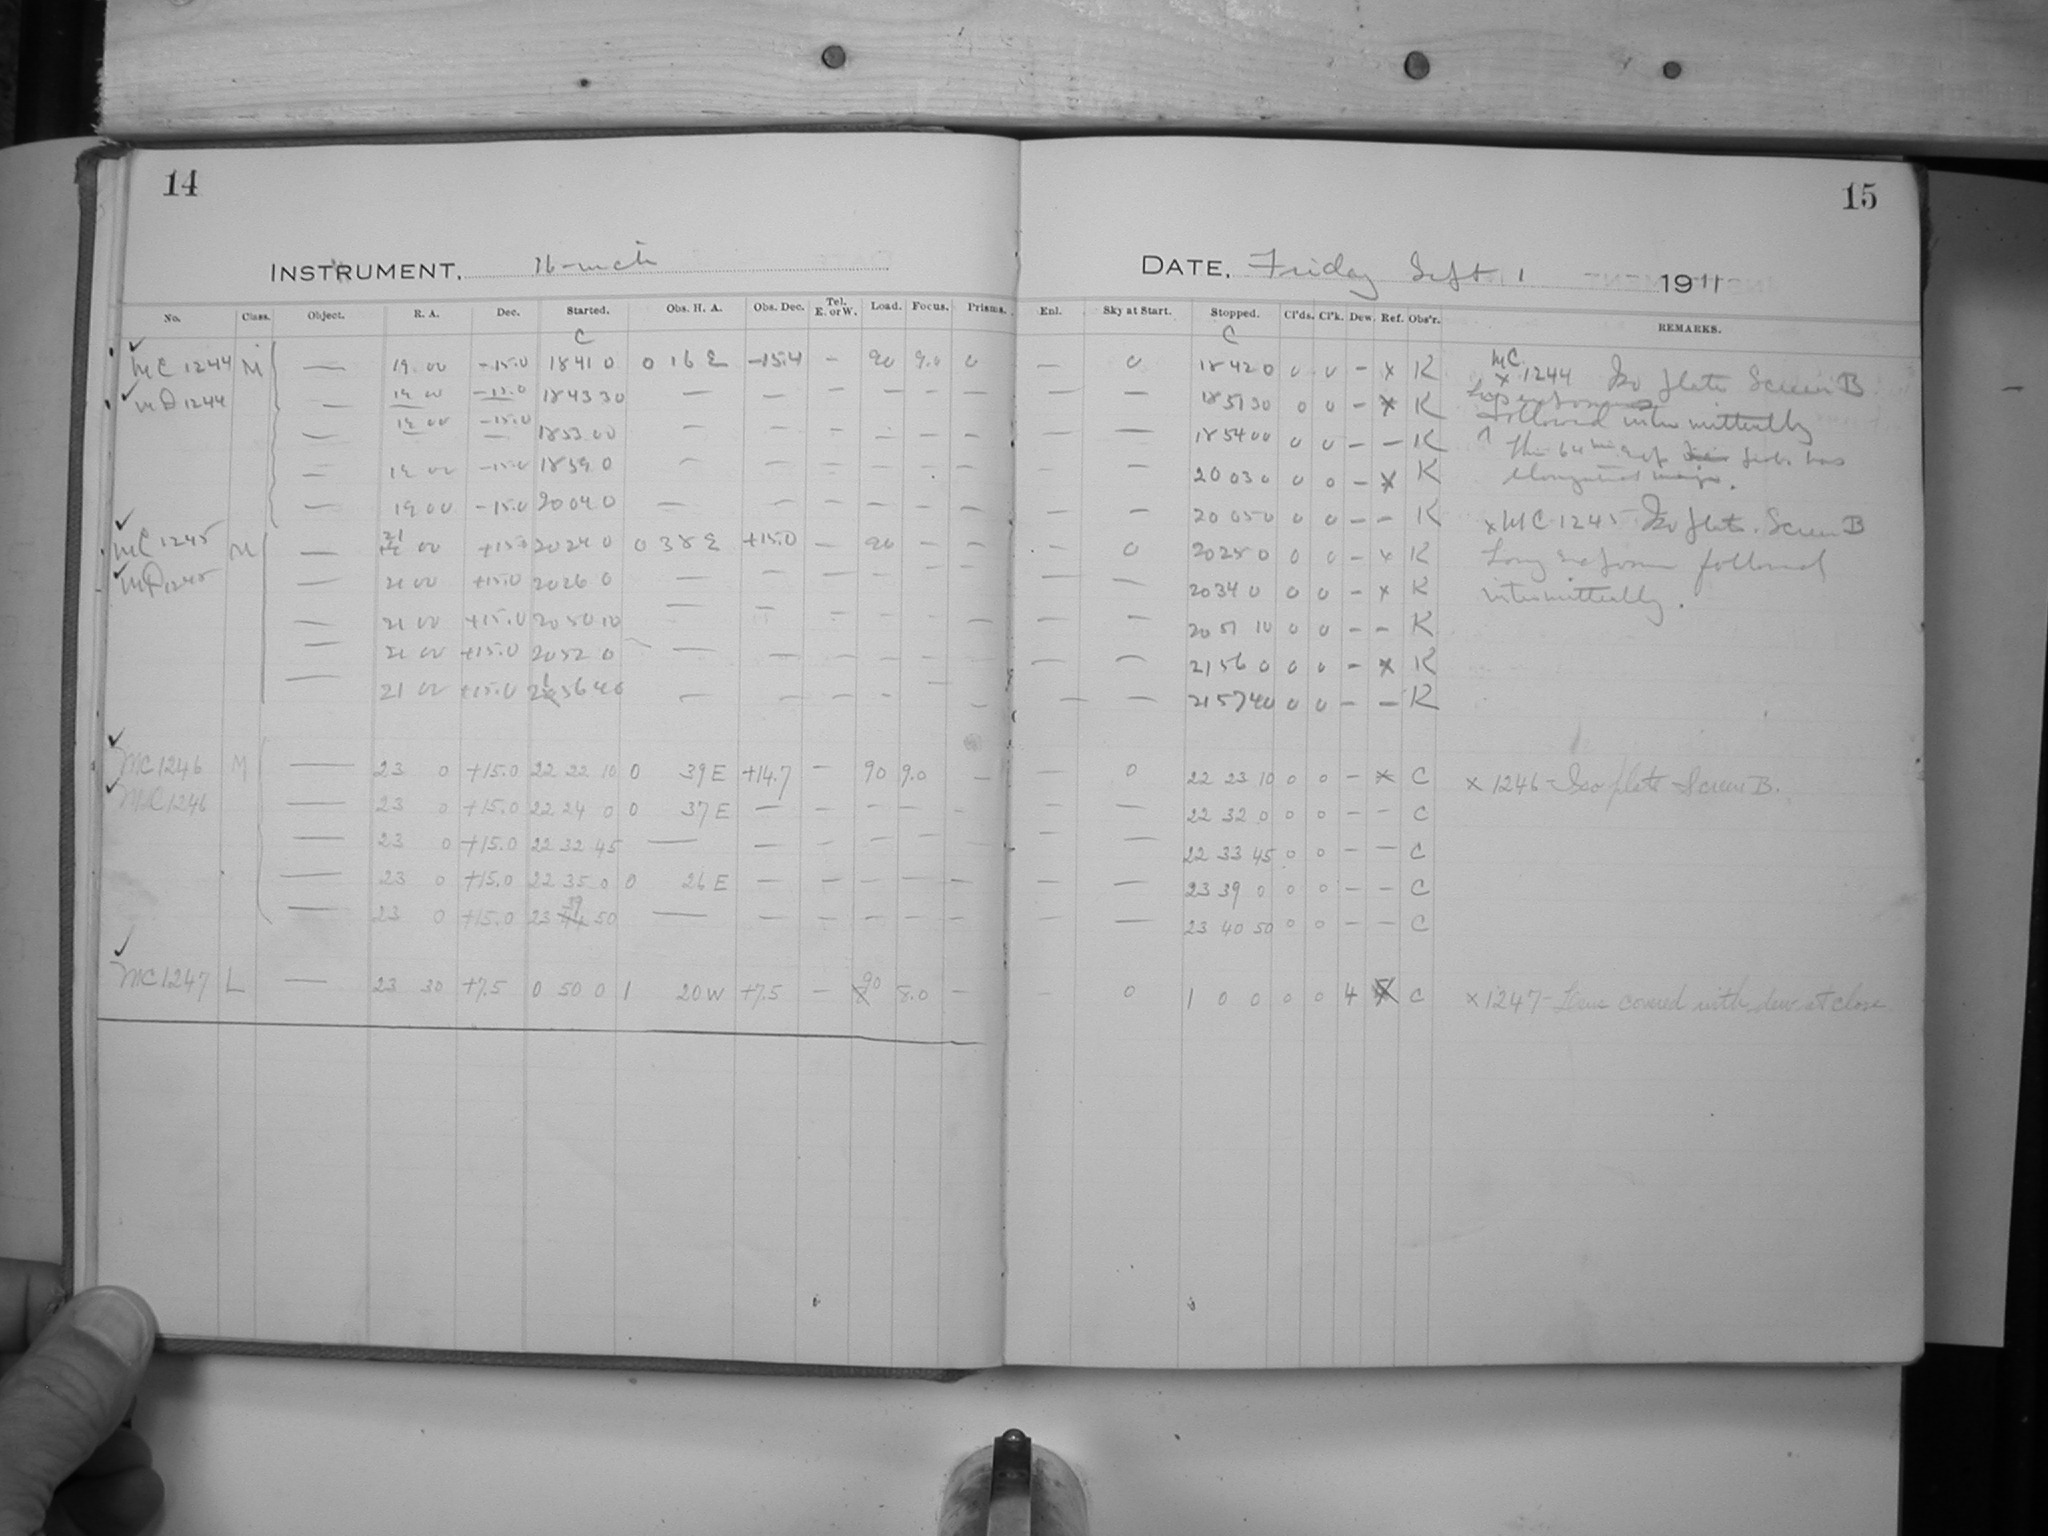 14
INSTRUMENT, 16-inch
No. Class. Object. R. A. Dec. Started. Obs. H. A. Obs. Dec. Tel. E. or W. Load. Focus. Prisms.
C
MC 1244 M — 19 00 -15.0 18 41 0 0 16 E -15.4 — 90 9.0 0
MD 1244 — 19 00 -15.0 18 43 30 — — — — — —
— 19 00 -15.0 18 53 00 — — — — — —
— 19 00 -15.0 18 59 0 — — — — — —
— 19 00 -15.0 20 04 0 — — — — — —
MC 1245 M — 21 00 +15.0 20 24 0 0 38 E +15.0 — 90 — —
MD 1245 — 21 00 +15.0 20 26 0 — — — — — —
— 21 00 +15.0 20 50 10 — — — — — —
— 21 00 +15.0 20 52 0 — — — — — —
— 21 00 +15.0 21 56 40 — — — — — —
MC 1246 M — 23 0 +15.0 22 22 10 0 39 E +14.7 — 90 9.0 —
MC 1246 — 23 0 +15.0 22 24 0 0 37 E — — — — —
— 23 0 +15.0 22 32 45 — — — — — —
— 23 0 +15.0 22 35 0 0 26 E — — — — —
— 23 0 +15.0 23 39 50 — — — — — —
MC 1247 L — 23 30 +7.5 0 50 0 1 20 W +7.5 — 90 8.0 —
15
DATE, Friday Sept 1 1911
Enl. Sky at Start. Stopped. Cl'ds. Cl'k. Dew. Ref. Obs'r. REMARKS.
C
— 0 18 42 0 0 0 — x K MC x 1244 Iso plate Screen B
— — 18 51 30 0 0 — x K
followed intermittently
— — 18 54 00 0 0 — — K
— — 20 03 0 0 0 — x K elongated
— — 20 05 0 0 0 — — K x MC 1245 Iso plate. Screen B
— 0 20 25 0 0 0 — x K Long followed
— — 20 34 0 0 0 — x K intermittently.
— — 20 51 10 0 0 — — K
— — 21 56 0 0 0 — x K
— — 21 57 40 0 0 — — K
— 0 22 23 10 0 0 — x C x 1246 - Iso plate Screen B.
— — 22 32 0 0 0 — — C
— — 22 33 45 0 0 — — C
— — 23 39 0 0 0 — — C
— — 23 40 50 0 0 — — C
— 0 1 0 0 0 0 4 x C x 1247 - Lens covered with dew at close